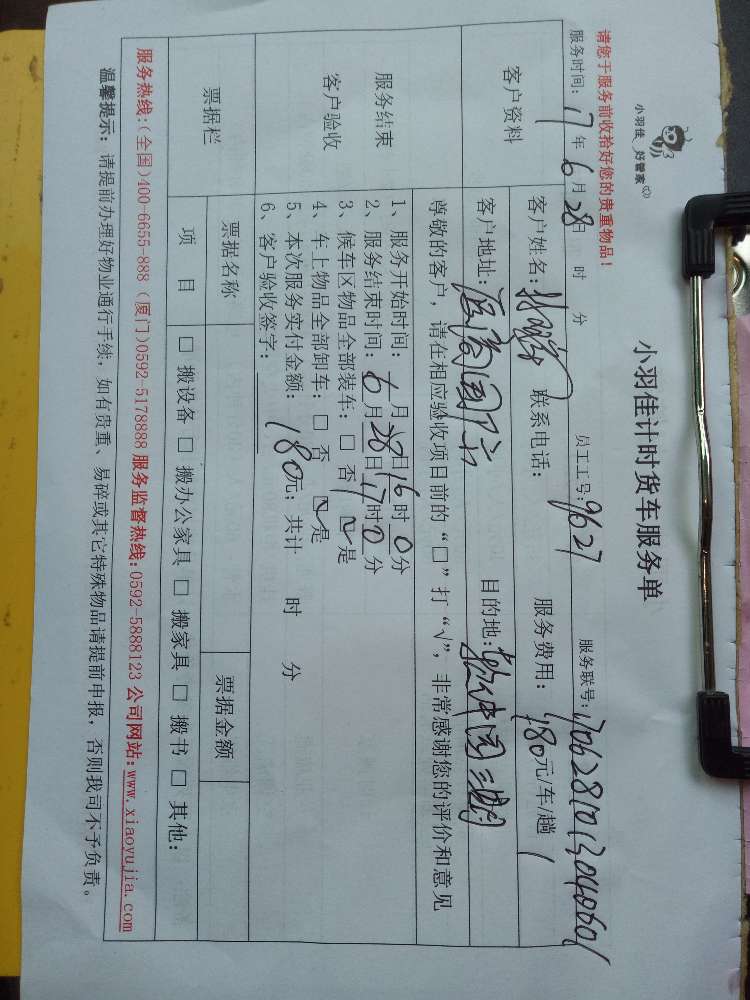 小羽佳 好管家
小羽佳计时货车服务单
请您于服务前收拾好您的贵重物品！
服务时间：17年6月28日 时 分 员工工号：9627 服务联号：
客户资料
客户姓名： 联系电话： 服务费用：180元/车/趟
客户地址： 目的地：软件园三期
尊敬的客户，请在相应验收项目前的“□”打“√”，非常感谢您的评价和意见
服务结束
客户验收
1、服务开始时间：6月28日16时0分
2、服务结束时间：6月28日17时0分
3、候车区物品全部装车：□ 否 ☑是
4、车上物品全部卸车：□ 否 ☑是
5、本次服务实付金额：180元；共计 时 分
6、客户验收签字：
票据栏
票据名称 票据金额
项 目 □ 搬设备 □ 搬办公家具 □ 搬家具 □ 搬书 □ 其他：
服务热线：（全国）400-6655-888（厦门）0592-5178888 服务监督热线：0592-5888123 公司网站：www.xiaoyujia.com
温馨提示：请提前办理好物业通行手续，如有贵重、易碎或其它特殊物品请提前申报，否则我司不予负责。